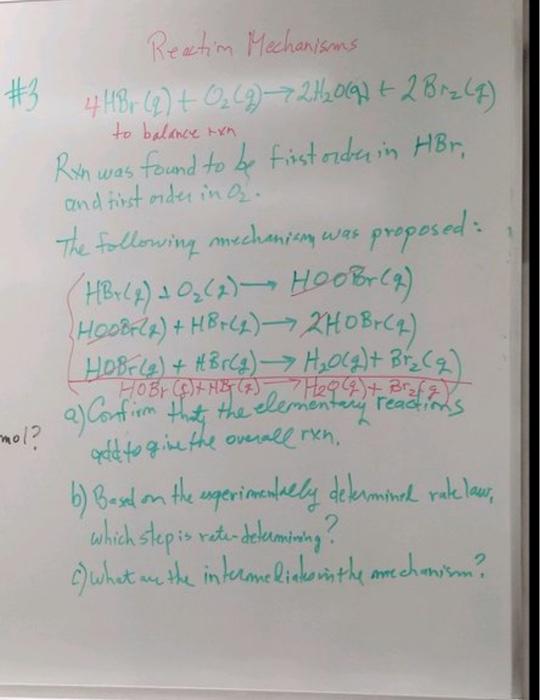 Reaction Mechanisms
#3 4HBr(g) + O₂(g) → 2H₂O(g) + 2Br₂(g)
to balance rxn
Rxn was found to be first order in HBr,
and first order in O₂.
The following mechanism was proposed:
HBr(g) + O₂(g) → HOOBr(g)
HOOBr(g) + HBr(g) → 2HOBr(g)
HOBr(g) + HBr(g) → H₂O(g) + Br₂(g)
HOBr(g) + HBr(g) → H₂O(g) + Br₂(g)
a) Confirm that the elementary reactions
mol?
add to give the overall rxn.
b) Based on the experimentally determined rate law,
which step is rate-determining?
c) What are the intermediates in the mechanism?